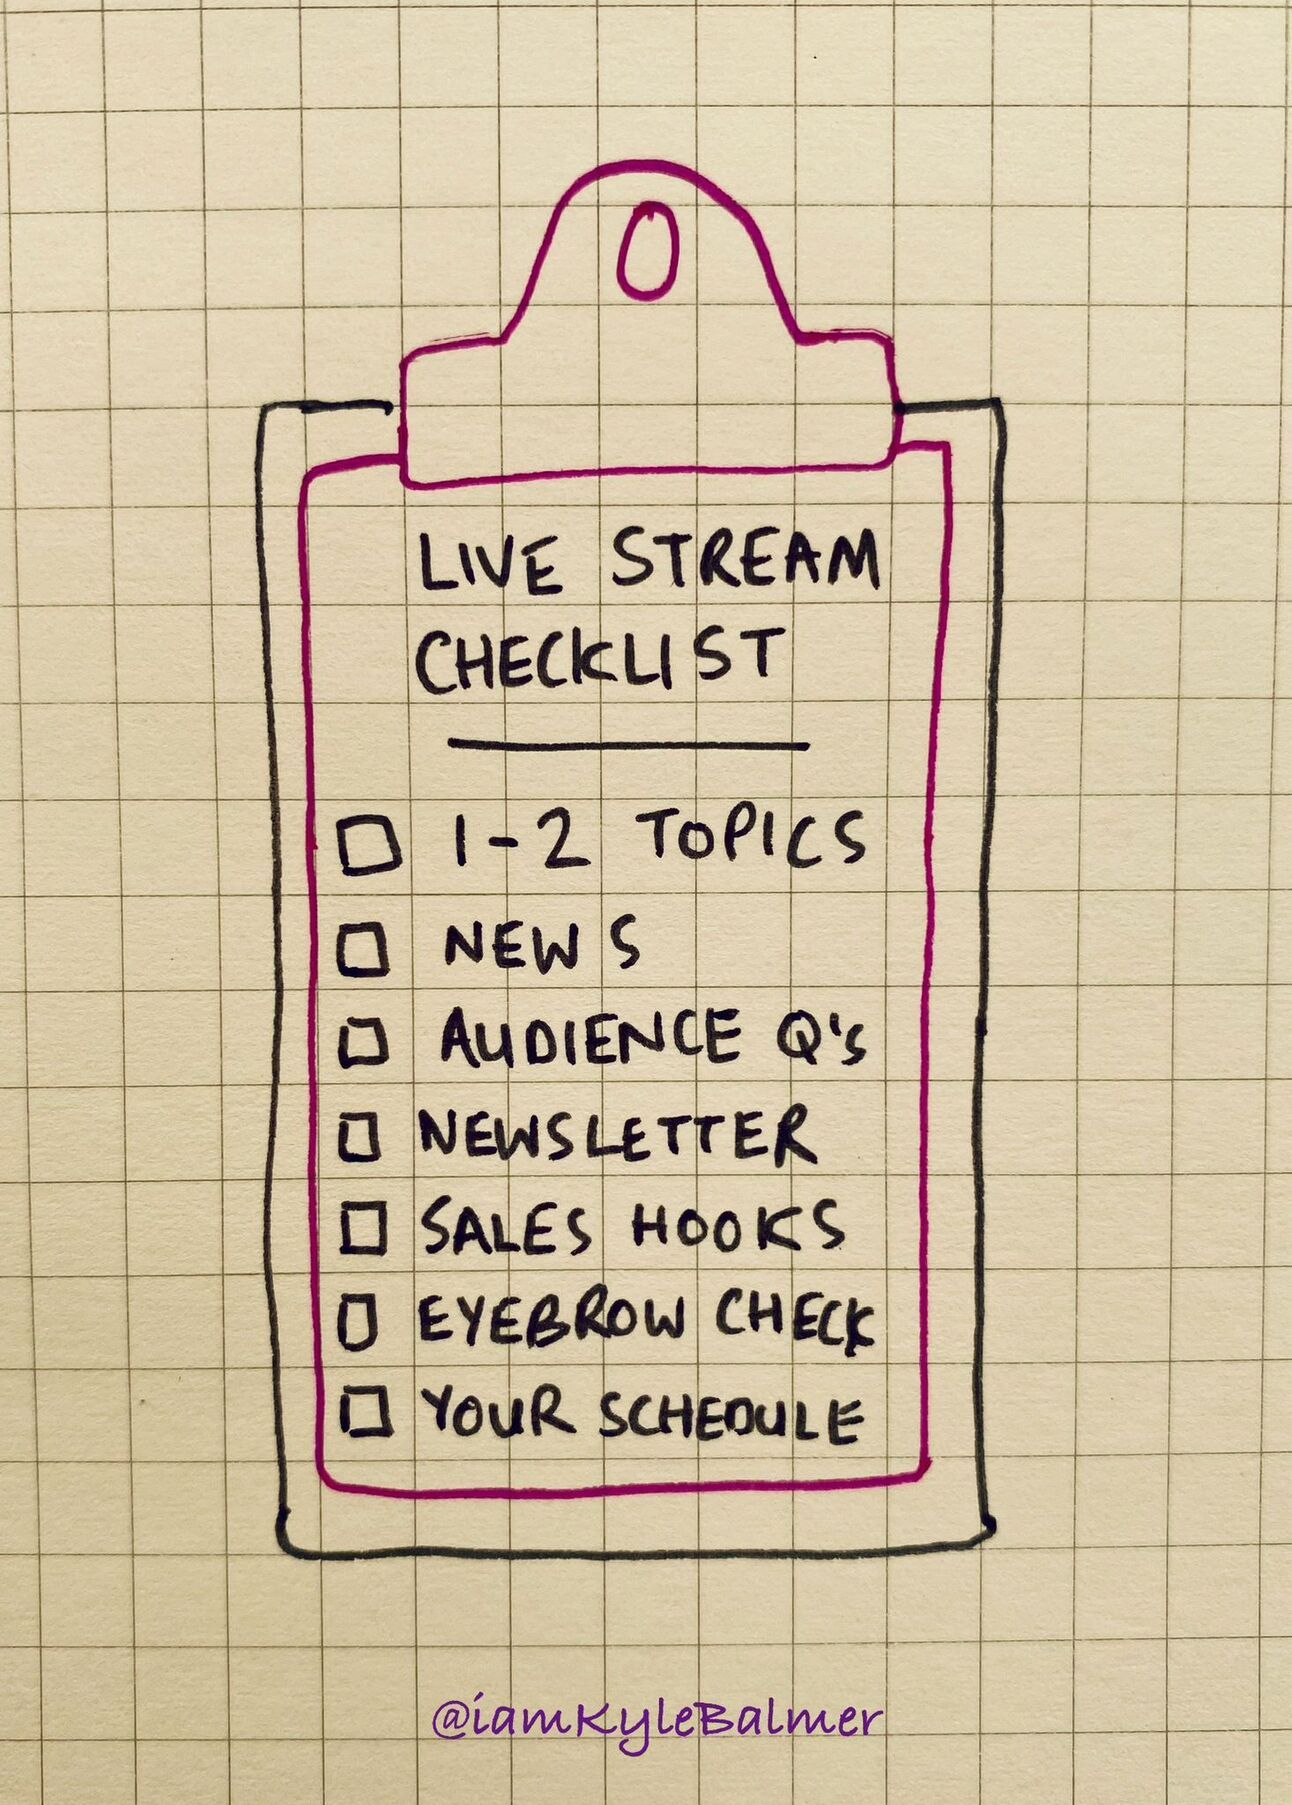 LIVE STREAM
CHECKLIST
1-2 TOPICS
NEWS
AUDIENCE Q's
NEWSLETTER
SALES HOOKS
EYEBROW CHECK
YOUR SCHEDULE
@iamKyleBalmer